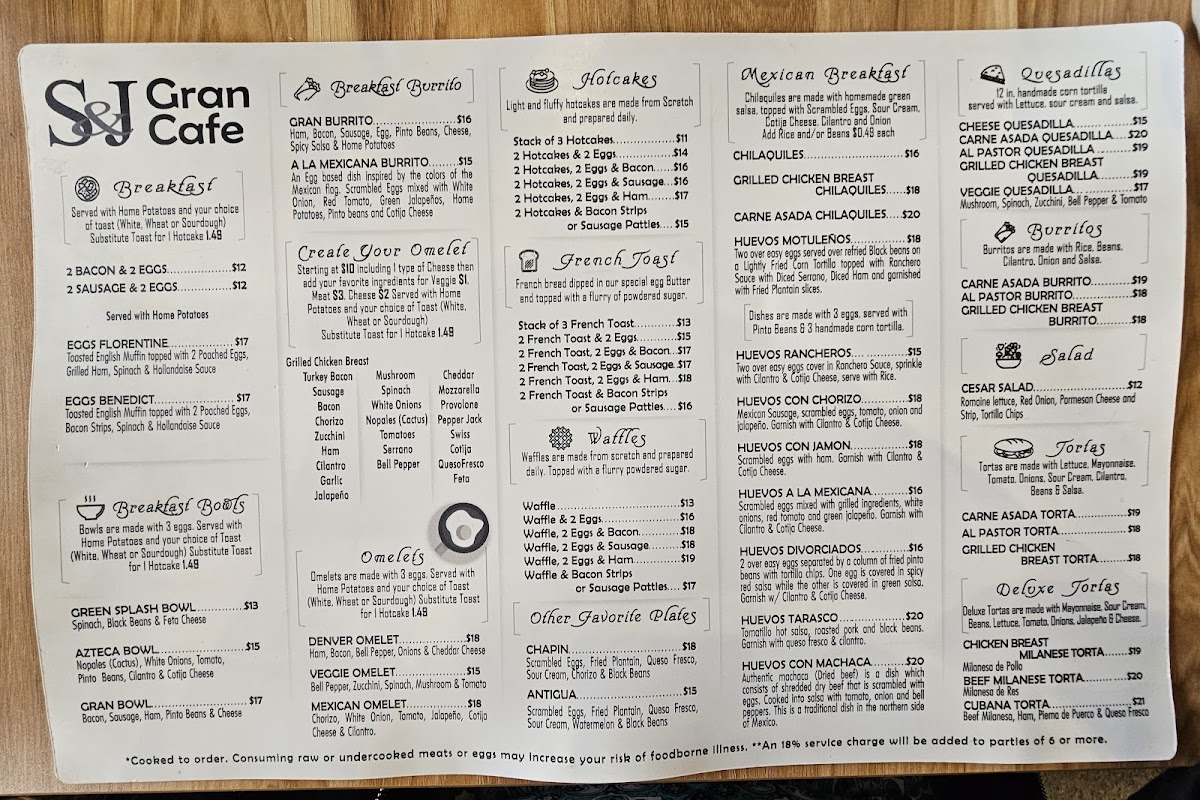 S&J Gran
Cafe
Breakfast
Served with Home Potatoes and your choice
of toast (White, Wheat or Sourdough)
Substitute Toast for 1 Hotcake 1.49
2 BACON & 2 EGGS...............$12
2 SAUSAGE & 2 EGGS.............$12
Served with Home Potatoes
EGGS FLORENTINE................$17
Toasted English Muffin topped with 2 Poached Eggs,
Grilled Ham, Spinach & Hollandaise Sauce
EGGS BENEDICT..................$17
Toasted English Muffin topped with 2 Poached Eggs,
Bacon Strips, Spinach & Hollandaise Sauce
Breakfast Bowls
Bowls are made with 3 eggs. Served with
Home Potatoes and your choice of Toast
(White, Wheat or Sourdough) Substitute Toast
for 1 Hotcake 1.49
GREEN SPLASH BOWL..........$13
Spinach, Black Beans & Feta Cheese
AZTECA BOWL....................$15
Nopales (Cactus), White Onions, Tomato,
Pinto Beans, Cilantro & Cotija Cheese
GRAN BOWL.....................$17
Bacon, Sausage, Ham, Pinto Beans & Cheese
Breakfast Burrito
GRAN BURRITO...................$16
Ham, Bacon, Sausage, Egg, Pinto Beans, Cheese,
Spicy Salsa & Home Potatoes
A LA MEXICANA BURRITO.......$15
An Egg based dish inspired by the colors of the
Mexican flag. Scrambled Eggs mixed with White
Onion, Red Tomato, Green Jalapeños, Home
Potatoes, Pinto beans and Cotija Cheese
Create Your Omelet
Starting at $10 including 1 type of Cheese then
add your favorite ingredients for Veggie $1,
Meat $3, Cheese $2 Served with Home
Potatoes and your choice of Toast (White,
Wheat or Sourdough)
Substitute Toast for 1 Hotcake 1.49
Grilled Chicken Breast
Turkey Bacon Mushroom Cheddar
Sausage Spinach Mozzarella
Bacon White Onions Provolone
Chorizo Nopales (Cactus) Pepper Jack
Zucchini Tomatoes Swiss
Ham Serrano Cotija
Cilantro Bell Pepper QuesoFresco
Garlic Feta
Jalapeño
Omelets
Omelets are made with 3 eggs. Served with
Home Potatoes and your choice of Toast
(White, Wheat or Sourdough) Substitute Toast
for 1 Hotcake 1.49
DENVER OMELET...............$18
Ham, Bacon, Bell Pepper, Onions & Cheddar Cheese
VEGGIE OMELET................$15
Bell Pepper, Zucchini, Spinach, Mushroom & Tomato
MEXICAN OMELET..............$18
Chorizo, White Onion, Tomato, Jalapeño, Cotija
Cheese & Cilantro.
Hotcakes
Light and fluffy hotcakes are made from Scratch
and prepared daily.
Stack of 3 Hotcakes...............$11
2 Hotcakes & 2 Eggs..............$14
2 Hotcakes, 2 Eggs & Bacon.....$16
2 Hotcakes, 2 Eggs & Sausage...$16
2 Hotcakes, 2 Eggs & Ham.......$17
2 Hotcakes & Bacon Strips
or Sausage Patties.... $15
French Toast
French bread dipped in our special egg Butter
and topped with a flurry of powdered sugar.
Stack of 3 French Toast..........$13
2 French Toast & 2 Eggs..........$15
2 French Toast, 2 Eggs & Bacon...$17
2 French Toast, 2 Eggs & Sausage. $17
2 French Toast, 2 Eggs & Ham...$18
2 French Toast & Bacon Strips
or Sausage Patties.... $16
Waffles
Waffles are made from scratch and prepared
daily. Topped with a flurry powdered sugar.
Waffle..............................$13
Waffle & 2 Eggs....................$16
Waffle, 2 Eggs & Bacon..........$18
Waffle, 2 Eggs & Sausage........$18
Waffle, 2 Eggs & Ham............$19
Waffle & Bacon Strips
or Sausage Patties.... $17
Other Favorite Plates
CHAPIN............................$18
Scrambled Eggs, Fried Plantain, Queso Fresco,
Sour Cream, Chorizo & Black Beans
ANTIGUA..........................$15
Scrambled Eggs, Fried Plantain, Queso Fresco,
Sour Cream, Watermelon & Black Beans
Mexican Breakfast
Chilaquiles are made with homemade green
salsa, topped with Scrambled Eggs, Sour Cream,
Cotija Cheese, Cilantro and Onion
Add Rice and/or Beans $0.49 each
CHILAQUILES......................$16
GRILLED CHICKEN BREAST
CHILAQUILES....$18
CARNE ASADA CHILAQUILES....$20
HUEVOS MOTULEÑOS............$18
Two over easy eggs served over refried Black beans on
a Lightly Fried Corn Tortilla topped with Ranchero
Sauce with Diced Serrano, Diced Ham and garnished
with Fried Plantain slices.
Dishes are made with 3 eggs, served with
Pinto Beans & 3 handmade corn tortilla.
HUEVOS RANCHEROS............$15
Two over easy eggs cover in Ranchero Sauce, sprinkle
with Cilantro & Cotija Cheese, serve with Rice.
HUEVOS CON CHORIZO..........$18
Mexican Sausage, scrambled eggs, tomato, onion and
jalapeño. Garnish with Cilantro & Cotija Cheese.
HUEVOS CON JAMON............$18
Scrambled eggs with ham. Garnish with Cilantro &
Cotija Cheese.
HUEVOS A LA MEXICANA........$16
Scrambled eggs mixed with grilled ingredients, white
onions, red tomato and green jalapeño. Garnish with
Cilantro & Cotija Cheese.
HUEVOS DIVORCIADOS..........$16
2 over easy eggs separated by a column of fried pinto
beans with tortilla chips. One egg is covered in spicy
red salsa while the other is covered in green salsa.
Garnish w/ Cilantro & Cotija Cheese.
HUEVOS TARASCO...............$20
Tomatillo hot salsa, roasted pork and black beans.
Garnish with queso fresco & cilantro.
HUEVOS CON MACHACA.........$20
Authentic machaca (Dried beef) is a dish which
consists of shredded dry beef that is scrambled with
eggs. Cooked into salsa with tomato, onion and bell
peppers. This is a traditional dish in the northern side
of Mexico.
Quesadillas
12 in. handmade corn tortilla
served with Lettuce, sour cream and salsa.
CHEESE QUESADILLA..............$15
CARNE ASADA QUESADILLA...$20
AL PASTOR QUESADILLA.........$19
GRILLED CHICKEN BREAST
QUESADILLA........$19
VEGGIE QUESADILLA..............$17
Mushroom, Spinach, Zucchini, Bell Pepper & Tomato
Burritos
Burritos are made with Rice, Beans,
Cilantro, Onion and Salsa.
CARNE ASADA BURRITO.........$19
AL PASTOR BURRITO.............$18
GRILLED CHICKEN BREAST
BURRITO.........$18
Salad
CESAR SALAD....................$12
Romaine lettuce, Red Onion, Parmesan Cheese and
Strip, Tortilla Chips
Tortas
Tortas are made with Lettuce, Mayonnaise,
Tomato, Onions, Sour Cream, Cilantro,
Beans & Salsa.
CARNE ASADA TORTA............$19
AL PASTOR TORTA................$18
GRILLED CHICKEN
BREAST TORTA........$18
Deluxe Tortas
Deluxe Tortas are made with Mayonnaise, Sour Cream,
Beans, Lettuce, Tomato, Onions, Jalapeño & Cheese.
CHICKEN BREAST
MILANESE TORTA.....$19
Milanesa de Pollo
BEEF MILANESE TORTA..........$20
Milanesa de Res
CUBANA TORTA..................$21
Beef Milanesa, Ham, Pierna de Puerco & Queso Fresco
*Cooked to order. Consuming raw or undercooked meats or eggs may increase your risk of foodborne illness. **An 18% service charge will be added to parties of 6 or more.